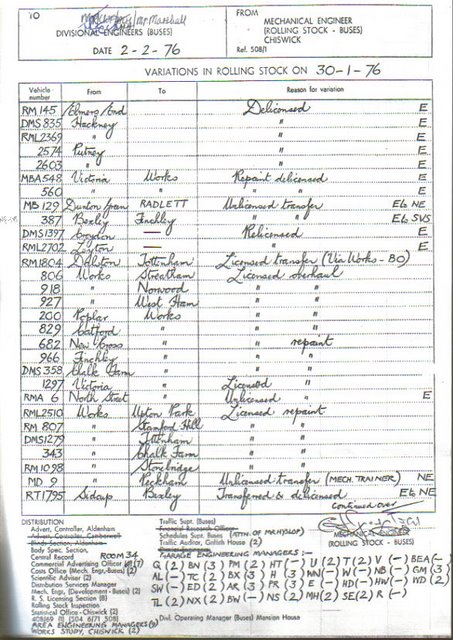 TO
DIVISIONAL ENGINEERS (BUSES)
DATE 2-2-76
FROM
MECHANICAL ENGINEER
(ROLLING STOCK - BUSES)
CHISWICK
Ref. 508/1
VARIATIONS IN ROLLING STOCK ON 30-1-76
Vehicle number From To Reason for variation
RM 145 Elmers End Delicensed E
DMS 835 Hackney " E
RML 2369 " " E
2574 Putney " E
2603 " " E
MBA 548 Victoria Works Repaint delicensed E
560 " " " " E
MB 129 Dunton Green RADLETT Unlicensed transfer E& NE
387 Bexley Finchley " " E& SVS
DMS 1397 Croydon — Relicensed E
RML 2702 Leyton — " E
RM 1804 Dalston Tottenham Licensed transfer (Via Works - BO)
806 Works Streatham Licensed overhaul
918 " Norwood " "
927 " West Ham " "
200 Poplar Works " "
829 Catford " " "
682 New Cross " " repaint
966 Finchley " " "
DMS 358 Chalk Farm " " "
1297 Victoria " Licensed "
RMA 6 North Street " Unlicensed " E
RML 2510 Works Upton Park Licensed repaint
RM 807 " Stamford Hill " "
DMS 1279 " Tottenham " "
343 " Chalk Farm " "
RM 1098 " Stonebridge " "
MD 9 " Peckham Unlicensed transfer (MECH. TRAINER) NE
RT 1795 Sidcup Bexley Transferred & delicensed E& NE
continued over
MECHANICAL ENGINEER
(ROLLING STOCK - BUSES)
DISTRIBUTION
Advert, Controller, Aldenham
Advert, Controller, Camberwell
Body Spec. Section,
Central Record ROOM 34
Commercial Advertising Officer (7)
Costs Office (Mech. Engr. Buses) (2)
Scientific Adviser (2)
Distribution Services Manager
Mech. Engr. (Development - Buses) (2)
R. S. Licensing Section (8)
Rolling Stock Inspection
Statistical Office - Chiswick (2)
AREA ENGINEERING MANAGERS
WORKS STUDY, CHISWICK (2)
Traffic Supt. (Buses)
Financial Research Officer
Schedules Supt. Buses
Traffic Auditor, Griffith House (2)
GARAGE ENGINEERING MANAGERS :-
Div. Operating Manager (Buses) Mansion House